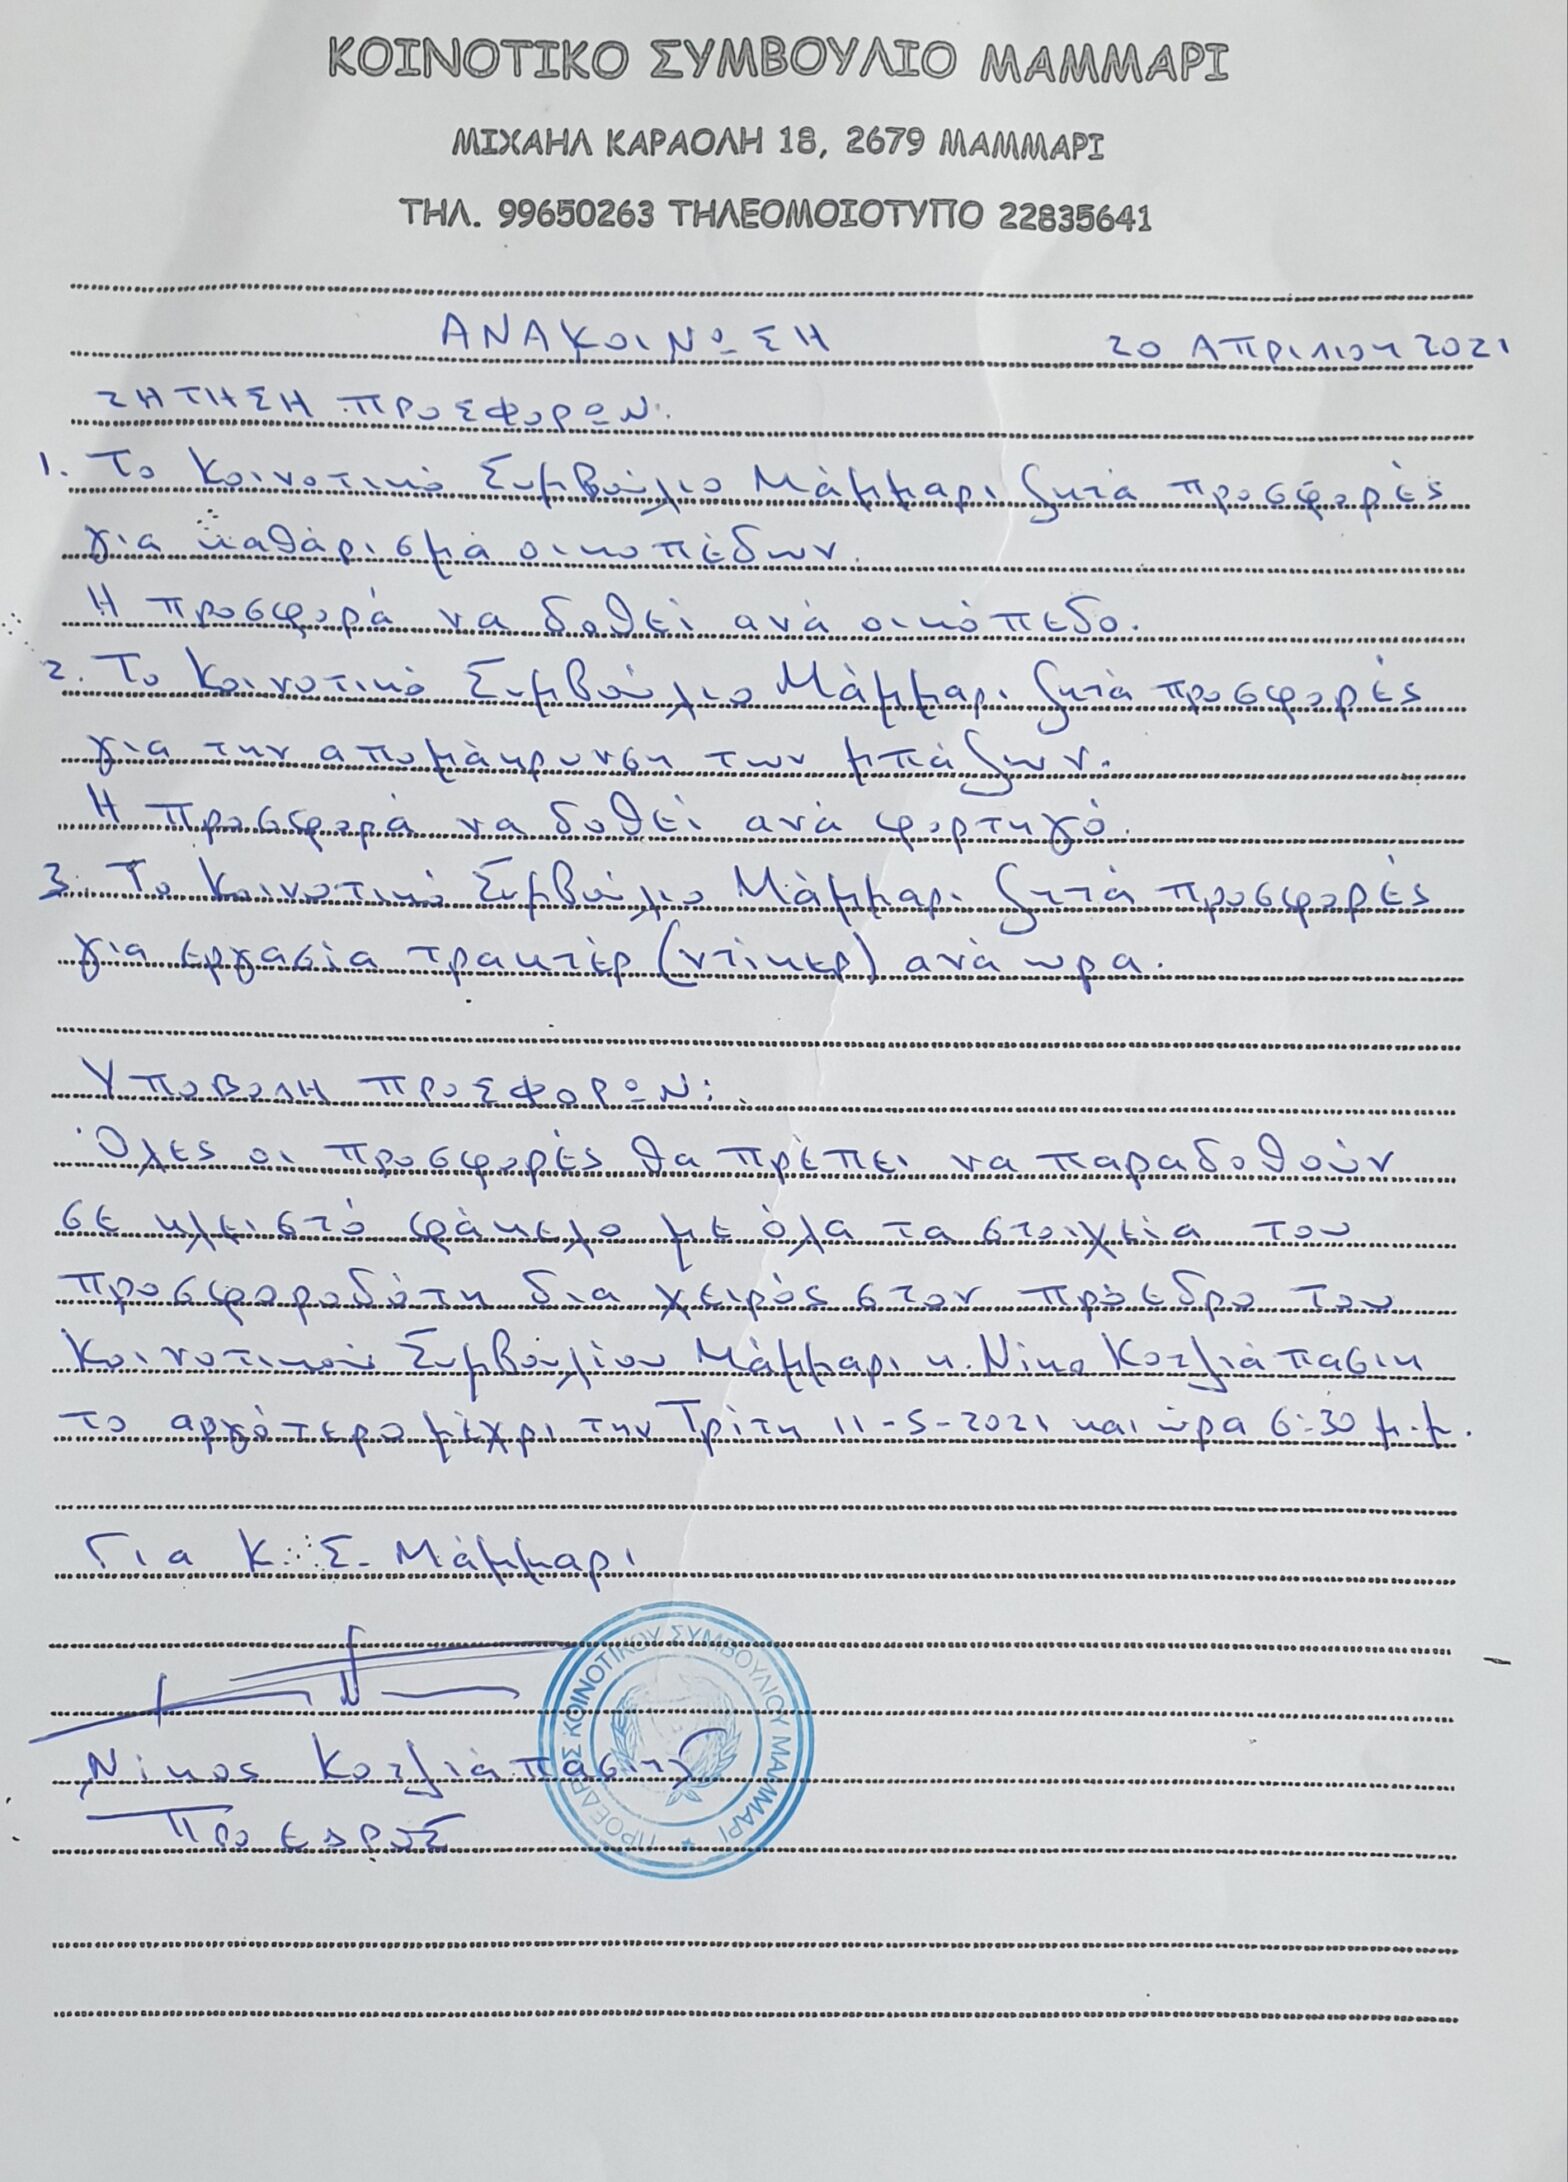 ΚΟΙΝΟΤΙΚΟ ΣΥΜΒΟΥΛΙΟ ΜΑΜΜΑΡΙ
ΜΙΧΑΗΛ ΚΑΡΑΟΛΗ 18, 2679 ΜΑΜΜΑΡΙ
ΤΗΛ. 99650263 ΤΗΛΕΟΜΟΙΟΤΥΠΟ 22835641
ΑΝΑΚΟΙΝΩΣΗ 20 ΑΠΡΙΛΙΟΥ 2021
ΖΗΤΗΣΗ ΠΡΟΣΦΟΡΩΝ.
1. Το Κοινοτικό Συμβούλιο Μάμμαρι ζητά προσφορές
για καθάρισμα οικοπέδων.
Η προσφορά να δοθεί ανά οικόπεδο.
2. Το Κοινοτικό Συμβούλιο Μάμμαρι ζητά προσφορές
για την απομάκρυνση των μπάζων.
Η προσφορά να δοθεί ανά φορτηγό.
3. Το Κοινοτικό Συμβούλιο Μάμμαρι ζητά προσφορές
για εργασία τρακτέρ (ντίκερ) ανά ωρα.
ΥΠΟΒΟΛΗ ΠΡΟΣΦΟΡΩΝ:
Όλες οι προσφορές θα πρέπει να παραδοθούν
σε κλειστό φάκελο με όλα τα στοιχεία του
προσφοροδότη δια χειρός στον πρόεδρο του
Κοινοτικού Συμβουλίου Μάμμαρι κ. Νίκο Κοτζιάπασιη
το αργότερο μέχρι την Τρίτη 11-5-2021 και ώρα 6:30 μ.μ.
Για Κ.Σ. Μάμμαρι
Νίκος Κοτζιάπασιης
ΠΡΟΕΔΡΟΣ
ΠΡΟΕΔΡΟΣ ΚΟΙΝΟΤΙΚΟΥ ΣΥΜΒΟΥΛΙΟΥ ΜΑΜΜΑΡΙ